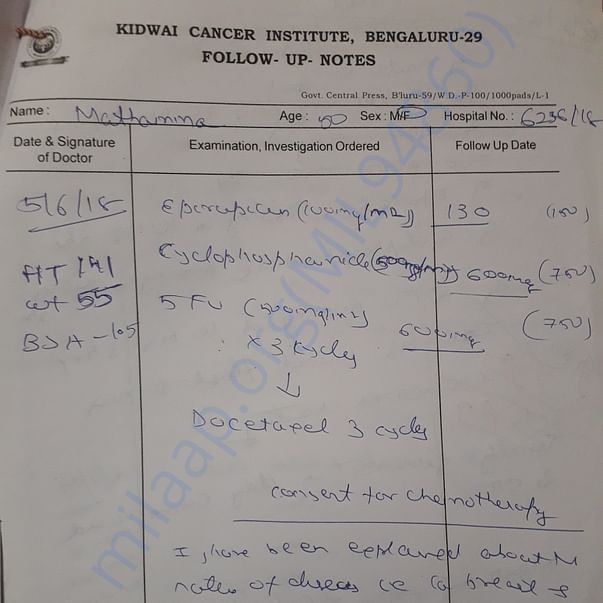 KIDWAI CANCER INSTITUTE, BENGALURU-29
FOLLOW- UP- NOTES
Govt. Central Press, B'luru-59/W.D.-P-100/1000pads/L-1
Name : Mathamma Age : 50 Sex : M/F Hospital No. : 6236/18
Date & Signature of Doctor Examination, Investigation Ordered Follow Up Date
5/6/18 (100mg/m2) 130 (150)
Cyclophosphamide (500mg/m2) 600mg (750)
HT 141
wt 55
5 FU (500mg/m2) 600mg (750)
BSA - 1.05
x 3 cycles
↓
Docetaxel 3 cycles
consent for chemotherapy
I, have been explained about
nature of disease ie ca breast &
milaap.org(MIL94360)